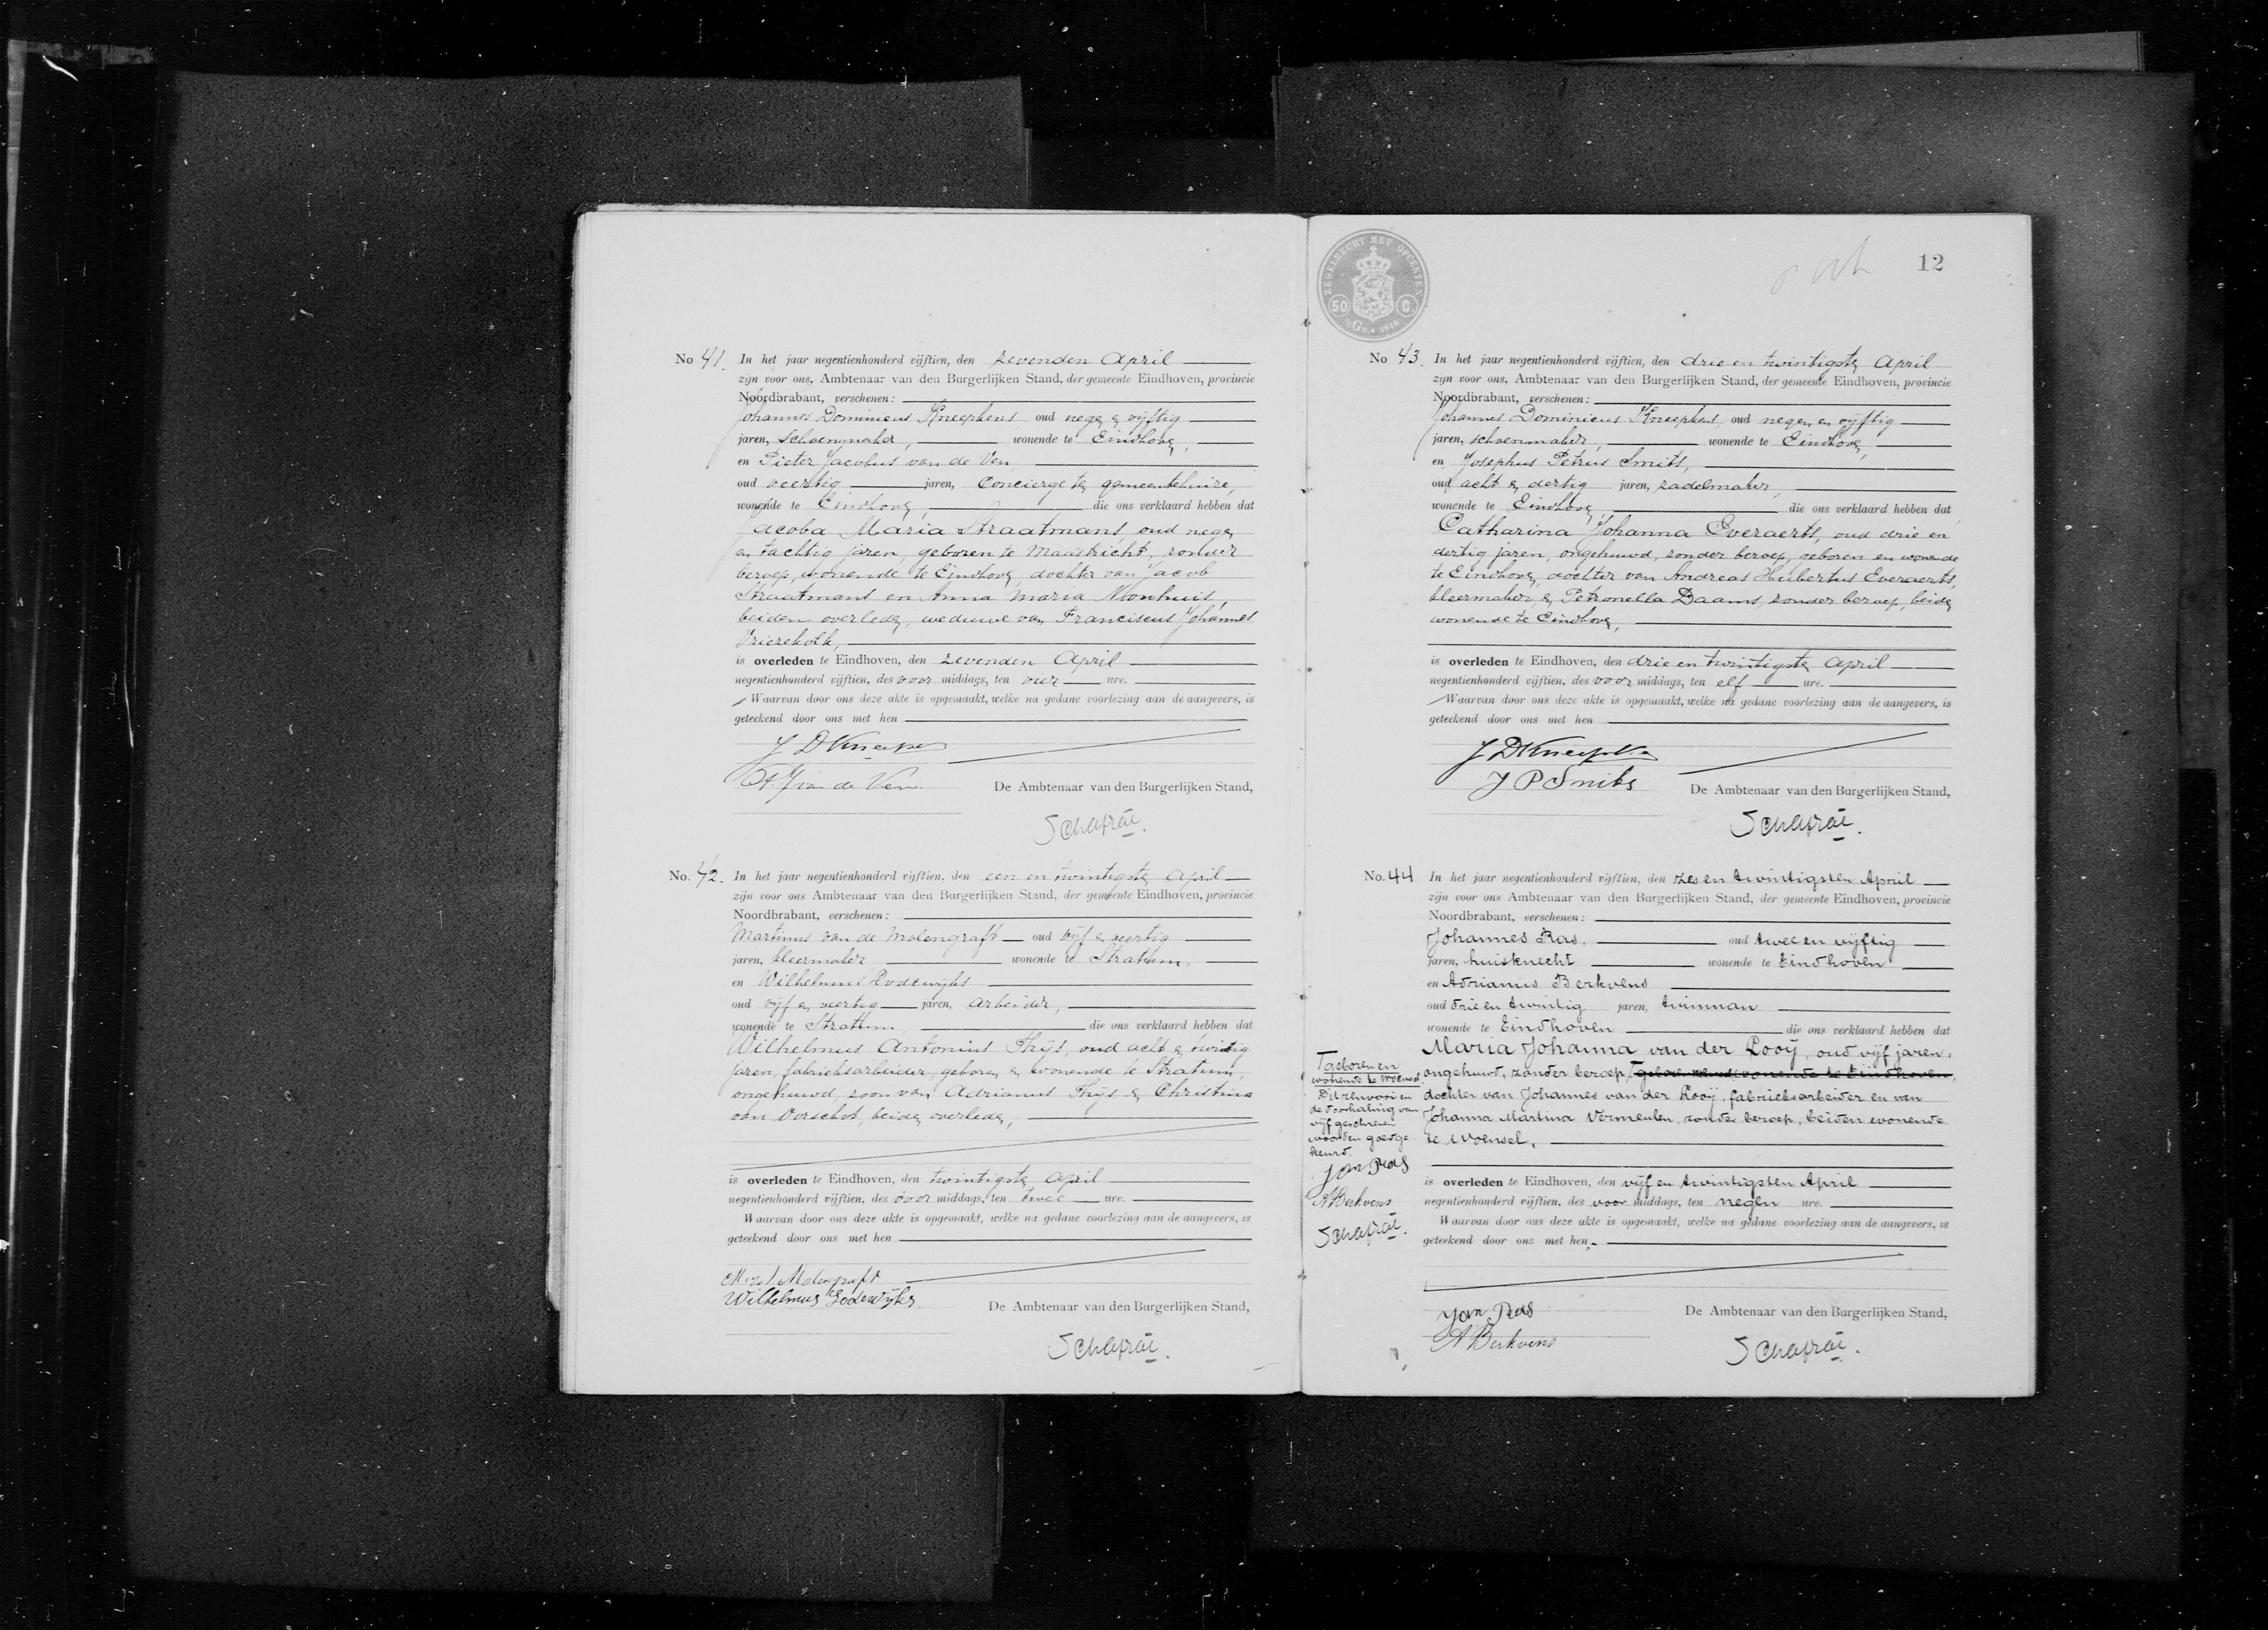 No 41. In het jaar negentienhonderd vijftien, den zevenden April
zijn voor ons, Ambtenaar van den Burgerlijken Stand, der gemeente Eindhoven, provincie
Noordbrabant, verschenen:
Johannes Dominicus Kneepkens oud negen en vijftig
jaren, schoenmaker, wonende te Eindhoven,
en Pieter Jacobus van de Ven,
oud veertig jaren, Concierge ten gemeentehuize,
wonende te Eindhoven, die ons verklaard hebben dat
Jacoba Maria Straatmans, oud negen
en tachtig jaren, geboren te Maastricht, zonder
beroep, wonende te Eindhoven, dochter van Jacob
Straatmans en Anna Maria Monhuis,
beiden overleden, weduwe van Franciscus Johannes
Vriezekolk,
is overleden te Eindhoven, den zevenden April
negentienhonderd vijftien, des voor middags, ten vier ure.
Waarvan door ons deze akte is opgemaakt, welke na gedane voorlezing aan de aangevers, is
geteekend door ons met hen
J D Kneepkens
P. J van de Ven
De Ambtenaar van den Burgerlijken Stand,
Schafrat.
No. 42. In het jaar negentienhonderd vijftien, den een en twintigsten April
zijn voor ons Ambtenaar van den Burgerlijken Stand, der gemeente Eindhoven, provincie
Noordbrabant, verschenen:
Martinus van de Molengraft oud vijf en veertig
jaren, kleermaker wonende te Stratum,
en Wilhelmus Lodewijks
oud vijf en veertig jaren, arbeider,
wonende te Stratum, die ons verklaard hebben dat
Wilhelmus Antonius Thijs, oud acht en twintig
jaren, fabrieksarbeider, geboren en wonende te Stratum,
ongehuwd, zoon van Adrianus Thijs en Christina
van Oorschot, beiden overleden,
is overleden te Eindhoven, den twintigsten April
negentienhonderd vijftien, des voor middags, ten twee ure.
Waarvan door ons deze akte is opgemaakt, welke na gedane voorlezing aan de aangevers, is
geteekend door ons met hen
M. v. d. Molengraft
Wilhelmus Lodewijks
De Ambtenaar van den Burgerlijken Stand,
Schafrat.
ZEGELRECHT MET OPCENTEN
50 C.
1914
12
No 43. In het jaar negentienhonderd vijftien, den drie en twintigsten April
zijn voor ons, Ambtenaar van den Burgerlijken Stand, der gemeente Eindhoven, provincie
Noordbrabant, verschenen:
Johannes Dominicus Kneepkens, oud negen en vijftig
jaren, schoenmaker, wonende te Eindhoven,
en Josephus Petrus Smits,
oud acht en dertig jaren, zadelmaker,
wonende te Eindhoven, die ons verklaard hebben dat
Catharina Johanna Everaerts, oud drie en
dertig jaren, ongehuwd, zonder beroep, geboren en wonende
te Eindhoven, dochter van Andreas Hubertus Everaerts,
kleermaker, en Petronella Daams, zonder beroep, beiden
wonende te Eindhoven,
is overleden te Eindhoven, den drie en twintigsten April
negentienhonderd vijftien, des voor middags, ten elf ure.
Waarvan door ons deze akte is opgemaakt, welke na gedane voorlezing aan de aangevers, is
geteekend door ons met hen
J D Kneepkens
J P Smits
De Ambtenaar van den Burgerlijken Stand,
Schafrat.
No. 44 In het jaar negentienhonderd vijftien, den zes en twintigsten April
zijn voor ons Ambtenaar van den Burgerlijken Stand, der gemeente Eindhoven, provincie
Noordbrabant, verschenen:
Johannes Ras, oud twee en vijftig
jaren, huisknecht wonende te Eindhoven
en Adrianus Berkvens
oud drie en twintig jaren, tuinman
wonende te Eindhoven die ons verklaard hebben dat
Maria Johanna van der Rooij, oud vijf jaren,
ongehuwd, zonder beroep, geboren en wonende te Eindhoven,
dochter van Johannes van der Rooij, fabrieksarbeider en van
Johanna Martina Vermeulen, zonder beroep, beiden wonende
te Woensel,
is overleden te Eindhoven, den vijf en twintigsten April
negentienhonderd vijftien, des voor middags, ten negen ure.
Waarvan door ons deze akte is opgemaakt, welke na gedane voorlezing aan de aangevers, is
geteekend door ons met hen,
Jan Ras
A Berkvens
De Ambtenaar van den Burgerlijken Stand,
Schafrat.
geboren en
wonende te Woensel
Dit renvooi en
de doorhaling van
vijf geschreven
woorden goedge
keurd.
Jan Ras
A Berkvens
Schafrat.